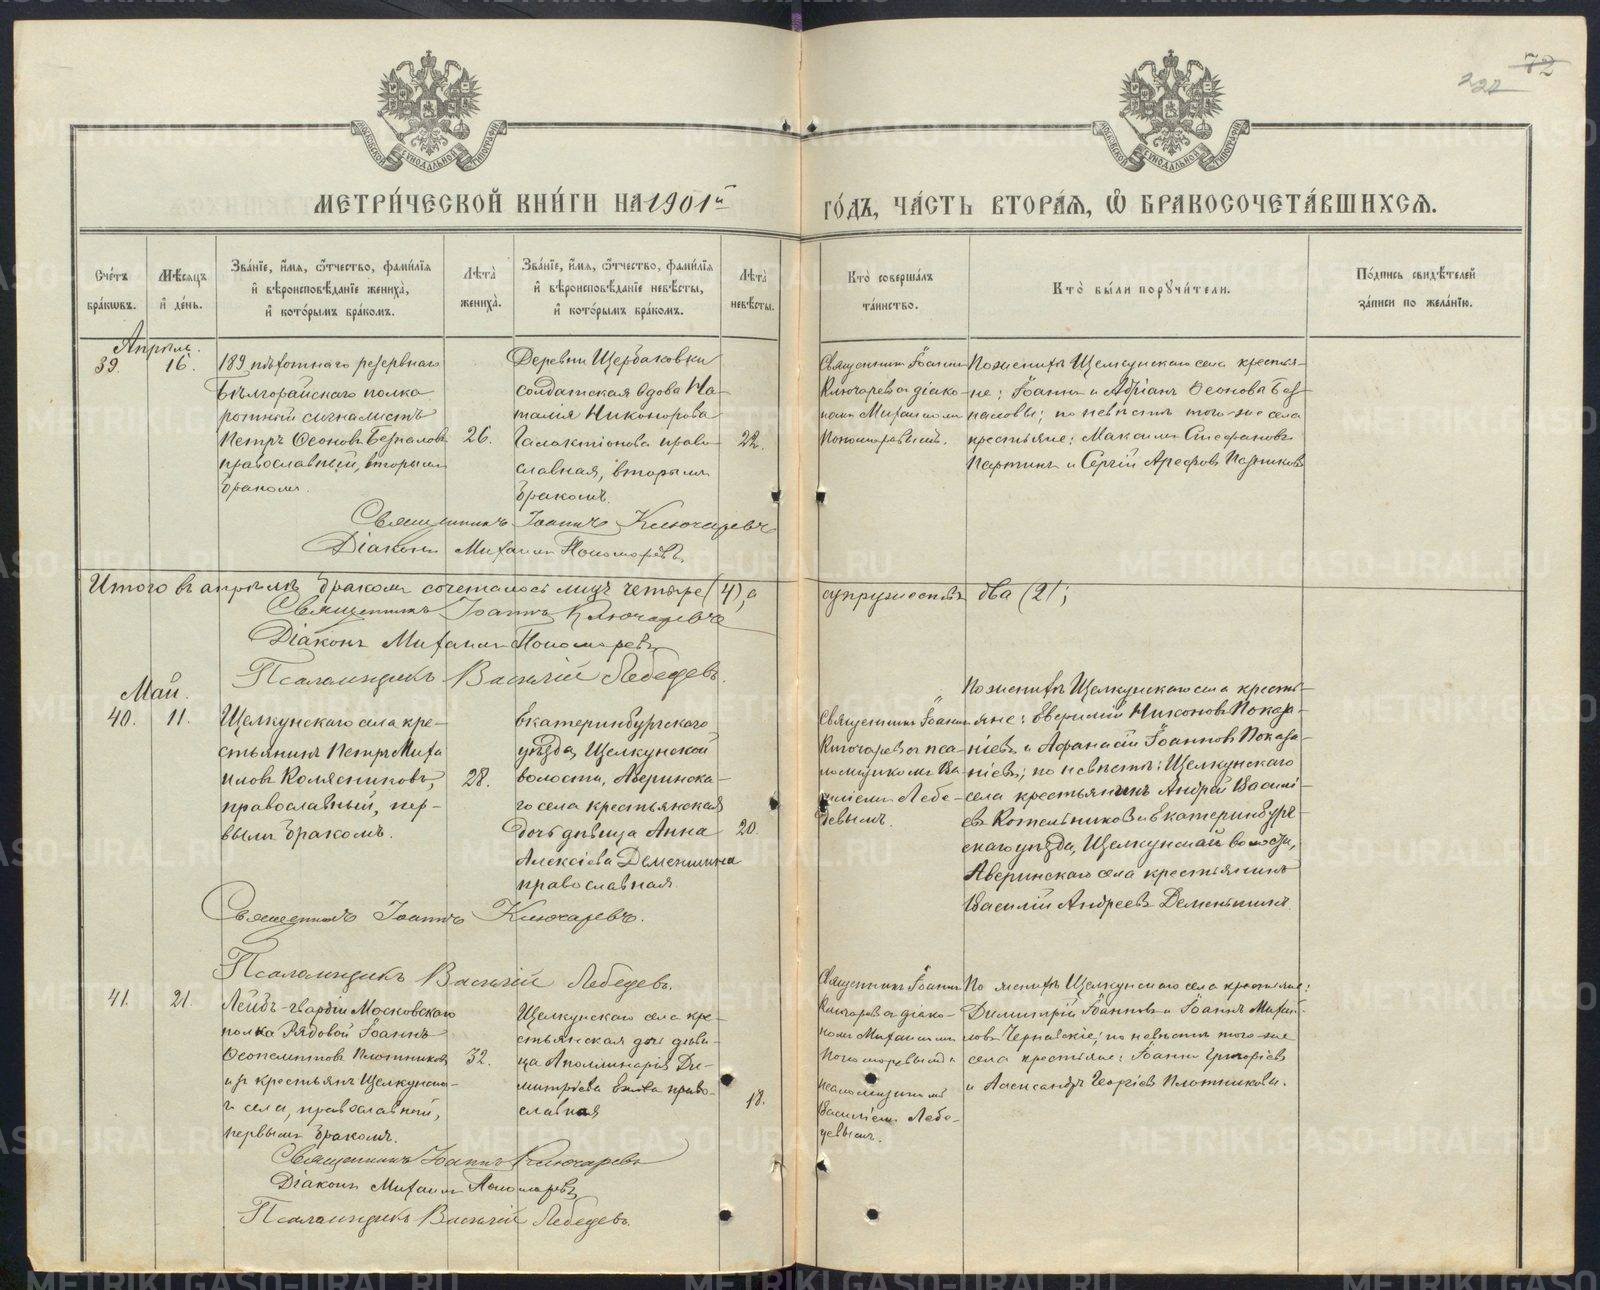 72
222
МОСКОВСКОЙ СѴНОДАЛЬНОЙ ТИПОГРАФІИ
МОСКОВСКОЙ СѴНОДАЛЬНОЙ ТИПОГРАФІИ
МЕТРИ́ЧЕСКОЙ КНИ́ГИ НА 1901й
ГО́ДЪ, ЧА́СТЬ ВТОРА́Я, Ѽ БРАКОСОЧЕТА́ВШИХСЯ.
Сче́тъ бра́кѡвъ.
Мѣ́сяцъ и҆ де́нь.
Зва́нїе, и҆́мя, ѻ҆́тчество, фами́лїя и҆ вѣроисповѣ́данїе жениха̀, и҆ кото́рымъ бра́комъ.
Лѣта̀ жениха̀.
Зва́нїе, и҆́мя, ѻ҆́тчество, фами́лїя и҆ вѣроисповѣ́данїе невѣ́сты, и҆ кото́рымъ бра́комъ.
Лѣта̀ невѣ́сты.
Кто̀ соверша́лъ та́инство.
Кто̀ бы́ли порꙋчи́тели.
По́дпись свидѣ́телей за́писи по жела́нїю.
Апрѣль.
39.
16.
189 пѣхотнаго резервнаго
Бѣлгорайскаго полка
ротный сигналистъ
Петръ Ѳеоновъ Безпаловъ
православный, вторымъ
бракомъ.
26.
Деревни Щербаковки
солдатская вдова На-
талія Никонорова
Галактіонова право-
славная, вторымъ
бракомъ.
22.
Священникъ Іоаннъ
Ключаревъ съ діако-
номъ Михаиломъ
Пономаревымъ.
По женихѣ Щелкунскаго села крестья-
не: Іоаннъ и Адріанъ Ѳеоновы Без-
паловы; по невѣстѣ того-же села
крестьяне: Максимъ Стефановъ
и Сергій Арефовъ
Священникъ Іоаннъ Ключаревъ
Діаконъ Михаилъ Пономаревъ.
Итого въ апрѣлѣ бракомъ сочеталось лицъ четыре (4), а
супружествъ два (2);
Священникъ Іоаннъ Ключаревъ
Діаконъ Михаилъ Пономаревъ
Псаломщикъ Василій Лебедевъ.
Май.
40.
11.
Щелкунскаго села кре-
стьянинъ Петръ Миха
иловъ Колясниковъ,
православный, пер-
вымъ бракомъ.
28.
Екатеринбургскаго
уѣзда, Щелкунской
волости, Аверинска-
го села крестьянская
дочь дѣвица Анна
Алексіева Деменшина
православная.
20.
Священникъ Іоаннъ
Ключаревъ съ пса-
ломщикомъ Ва-
силіемъ Лебе-
девымъ.
По женихѣ Щелкунскаго села кресть-
яне: Никоновъ Показа-
ніевъ и Аѳанасій Іоанновъ Показа-
ніевъ; по невѣстѣ: Щелкунскаго
села крестьянинъ Андрей Василі-
евъ Котельниковъ и Екатеринбург-
скаго уѣзда, Щелкунской волости,
Аверинскаго села крестьянинъ
Василій Андреевъ Деменьшинъ.
Священникъ Іоаннъ Ключаревъ.
Псаломщикъ Василій Лебедевъ.
41.
21.
Лейбъ-гвардіи Московскаго
полка Рядовой Іоаннъ
Ѳеопемптовъ Плотниковъ
изъ крестьянъ Щелкунска-
го села, православный,
первымъ бракомъ.
32.
Щелкунскаго села кре-
стьянская дочь дѣви-
ца Аполлинарія Ди-
митріева право-
славная
18.
Священникъ Іоаннъ
Ключаревъ съ діако-
номъ Михаиломъ
Пономаревымъ и
псаломщикомъ
Василіемъ Лебе-
девымъ.
По женихѣ Щелкунскаго села крестьяне:
Димитрій Іоанновъ и Іоаннъ Михаи-
ловъ Чернавскіе; по невѣстѣ того-же
села крестьяне: Іоаннъ Григоріевъ
и Александръ Георгіевъ Плотниковы.
Священникъ Іоаннъ Ключаревъ
Діаконъ Михаилъ Пономаревъ
Псаломщикъ Василій Лебедевъ.
METRIKI.GASO-URAL.RU